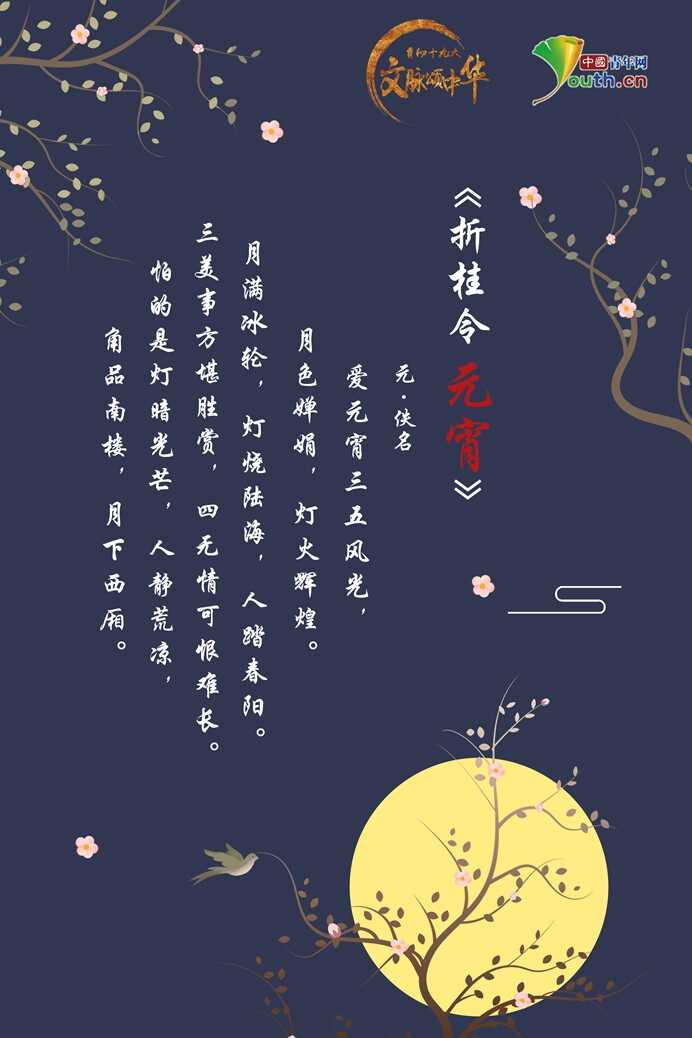 喜迎十九大
文脉颂中华
中國青年网
Youth.cn
《折桂令 元宵》
元·佚名
爱元宵三五风光，
月色婵娟，灯火辉煌。
月满冰轮，灯烧陆海，人踏春阳。
三美事方堪胜赏，四无情可恨难长。
怕的是灯暗光芒，人静荒凉，
角品南楼，月下西厢。